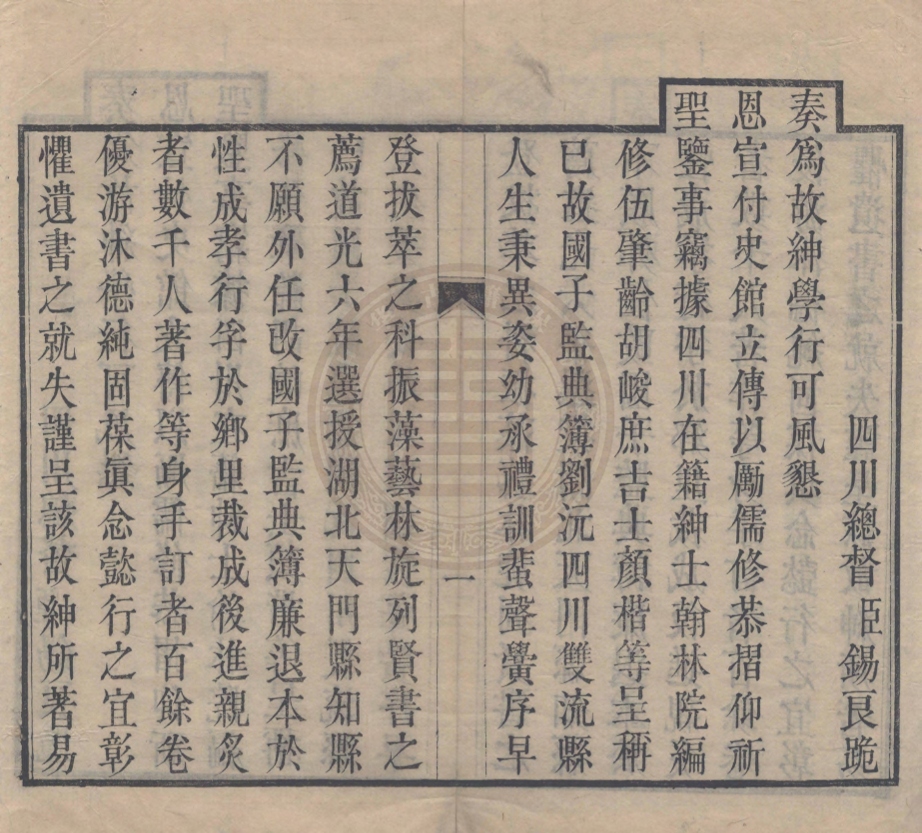 四川總督臣錫良跪
奏爲故紳學行可風懇
恩宣付史館立傳以勵儒修恭摺仰祈
聖鑒事竊據四川在籍紳士翰林院編
修伍肇齡胡峻庶吉士顏楷等呈稱
已故國子監典簿劉沅四川雙流縣
人生秉異姿幼承禮訓蜚聲黌序早
一
登拔萃之科振藻藝林旋列賢書之
薦道光六年選授湖北天門縣知縣
不願外任改國子監典簿廉退本於
性成孝行孚於鄉里裁成後進親炙
者數千人著作等身手訂者百餘卷
優游沐德純固葆眞念懿行之宜彰
懼遺書之就失謹呈該故紳所著易